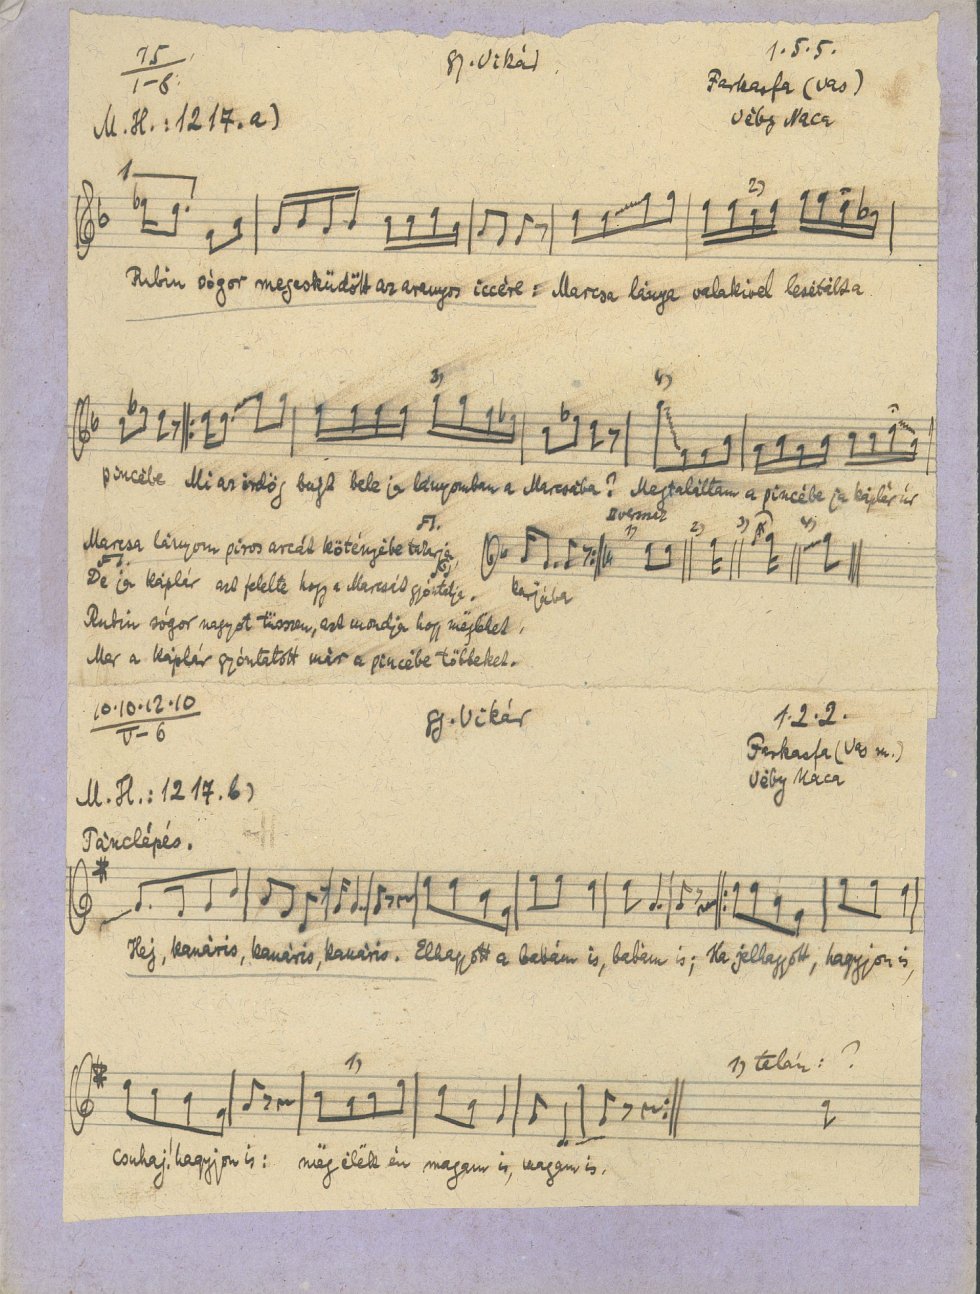 15
1–6
gy. Vikár
1.5.5.
Farkasfa (Vas)
Véby Naca
M. H.: 1217. a)
1
2)
Rubin sógor megesküdött az aranyos iccére: Marcsa lánya valakivel lesétált a
3)
4)
pincébe Mi az ördög bujt bele ja lányomban a Marcsába? Megtaláltam a pincébe ja káplár úr
II versszak
1) 2) 3) 4)
Marcsa lányom piros arcát kötényébe takarja,
karjába
De ja káplár azt felelte hogy a Marcsát gyóntatja.
Rubin sógor nagyot tüsszen, azt mondja hogy
Mer a káplár gyóntatott már a pincébe többeket.
10.10.12.10
V–6
gy. Vikár
1.2.2.
Farkasfa (Vas m.)
Véby Naca
M. H.: 1217. b)
Tánclépés.
Hej, kanáris, kanáris, kanáris. Elhagyott a babám is, babám is; Ha jelhagyott, hagyjon is,
1)
1) talán: ?
csuhaj! hagyjon is: még élek én magam is, magam is.